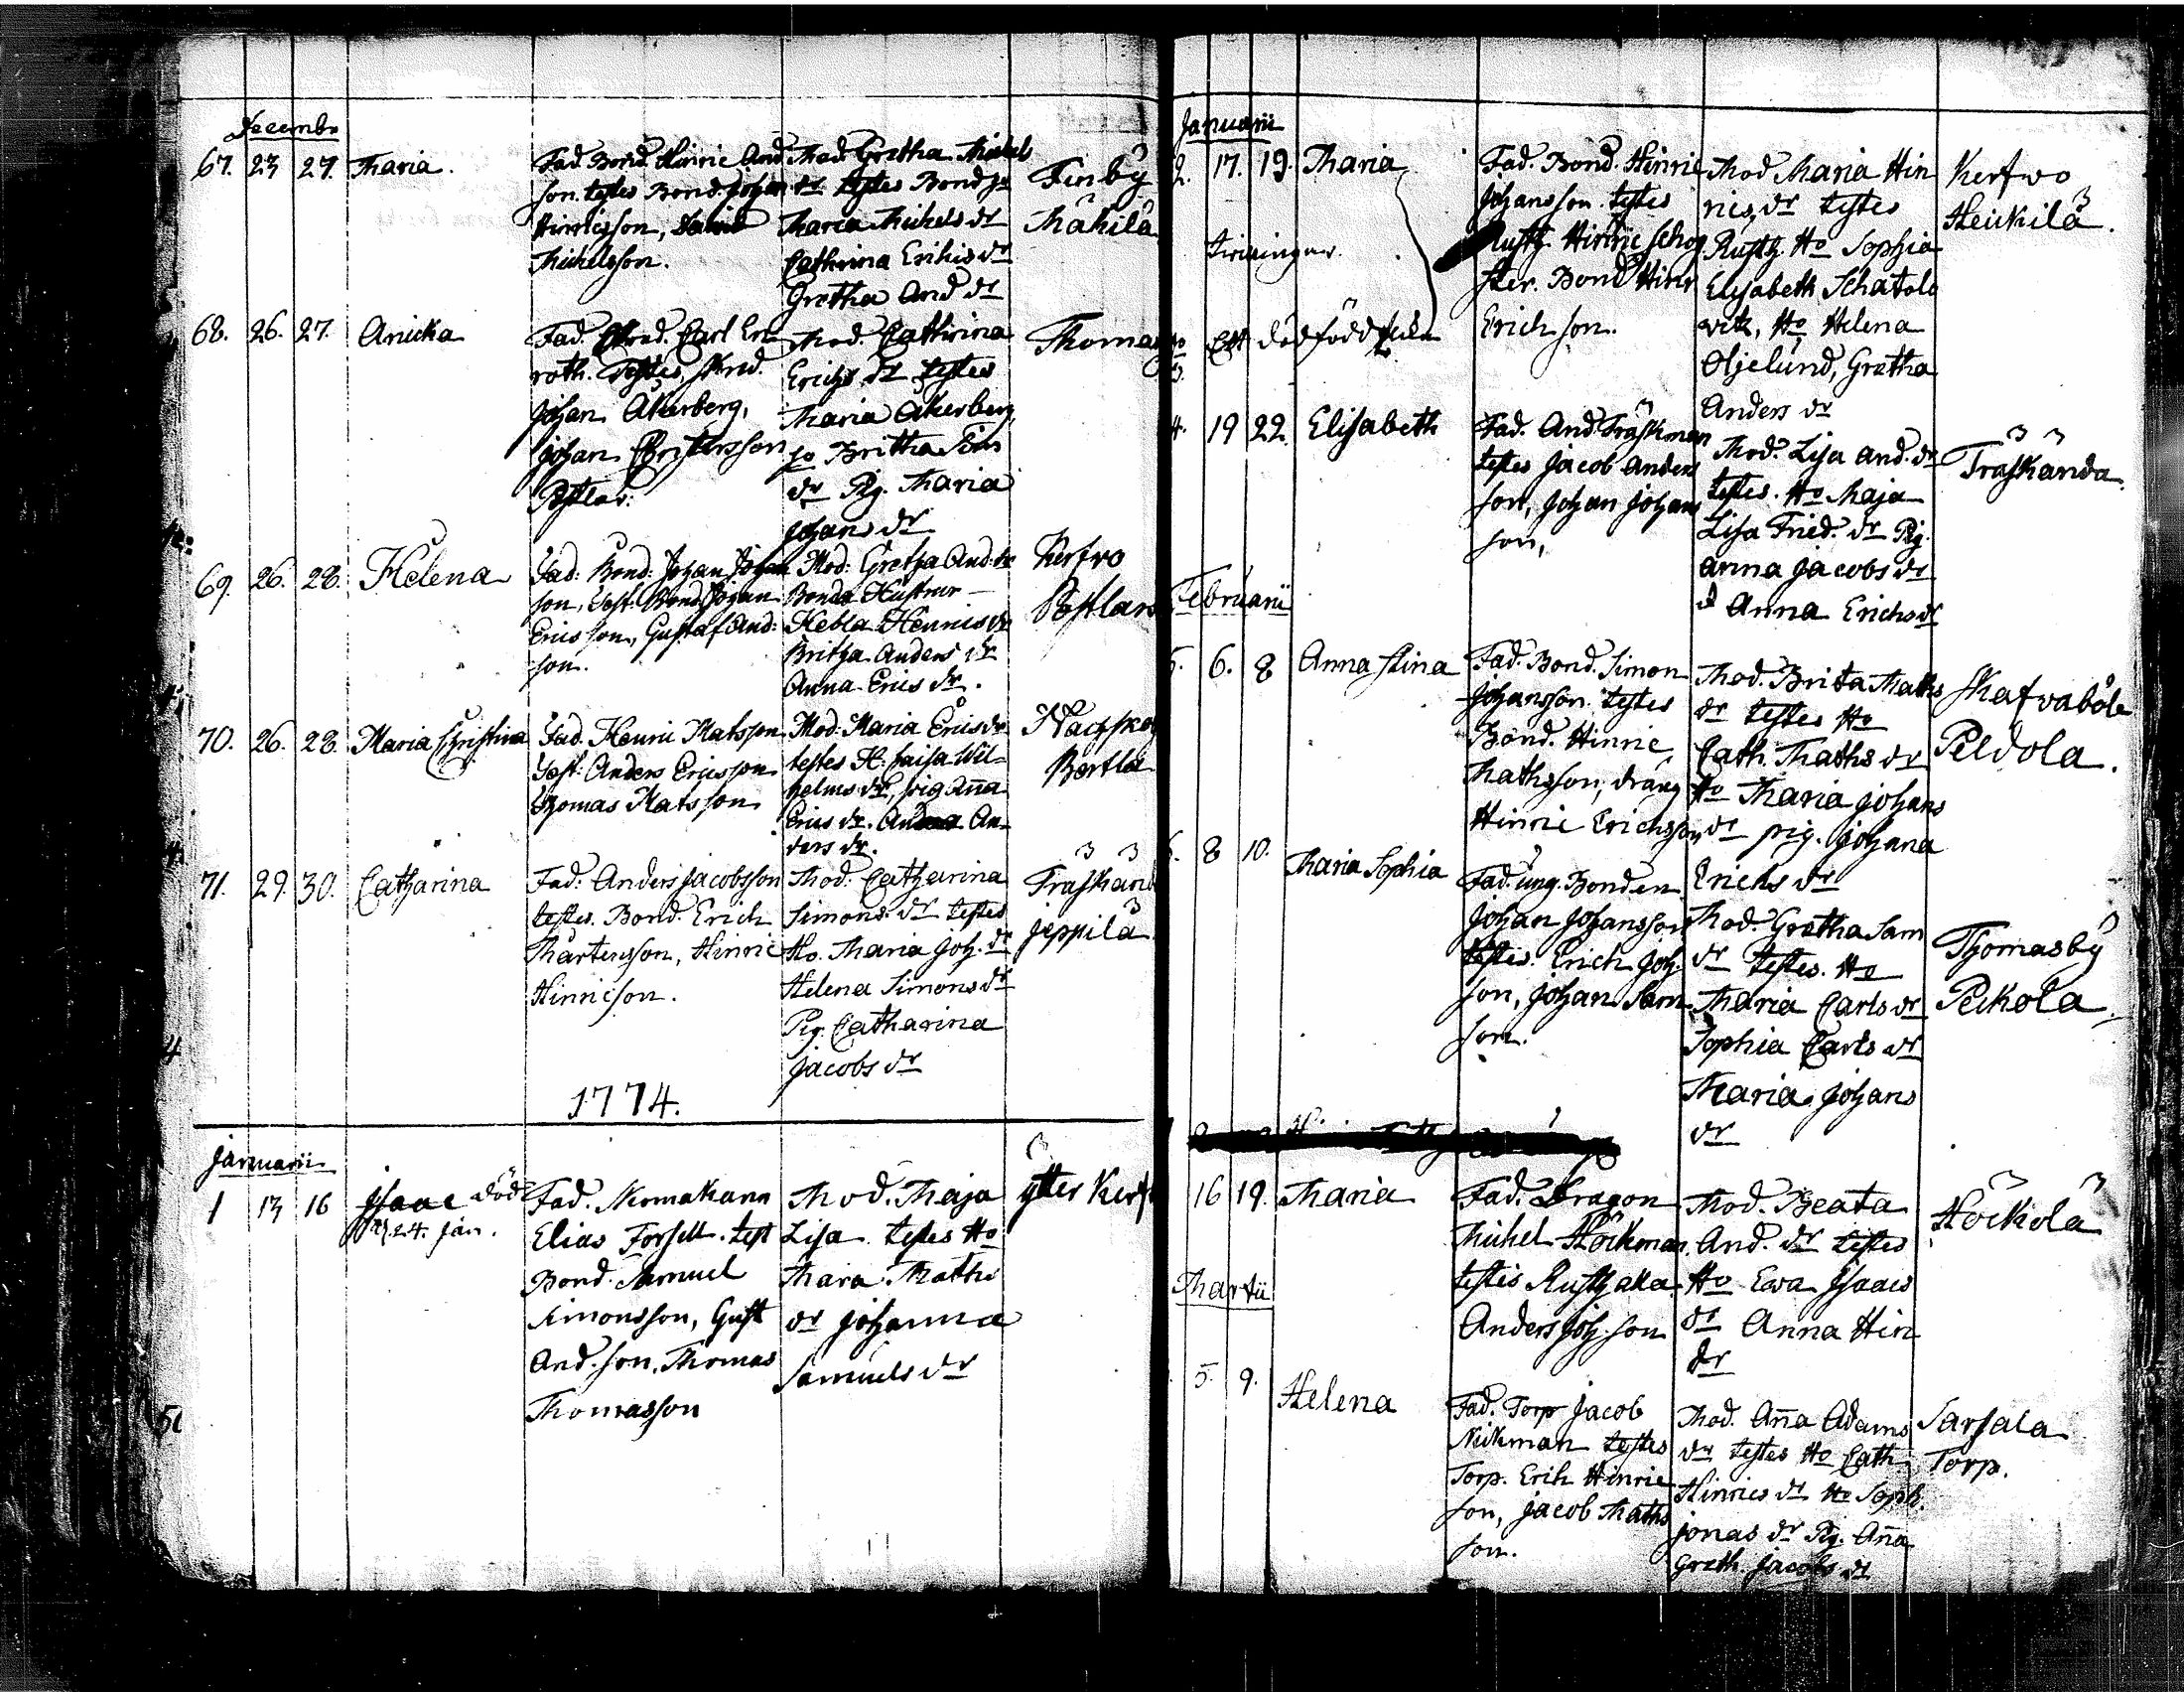 Decembr
67. 23 27. Maria.
Fad. Bond. Hinric And
son. testes Bond. Johan
Hinricsson,
Michelsson.
Mod. Gretha Michels
dr testes Bond
Maria Michels dr
Cathrina Erichs dr
Gretha And dr
Finby
Mahilä
68. 26. 27. Anicka
Fad. Carl En
roth. Testes
Johan Åkerberg,
Johan Christersson
Påstlar.
Mod. Cathrina
Erichs dr testes
Maria Åkerberg,
Britha Sim
dr Pig. Maria
Johans dr
Thomas
69. 26. 28. Helena
Fad: Bond: Johan Johan
son, Test: Bond Johan
Ericsson, Gustaf And:
son.
Mod: Gretha And: dr
Bonde Hustrur
Hebla Henrics dr
Britha Anders dr
Anna Erics dr.
Kerfvo
Påstlars
70. 26. 28. Maria Christina
Fad. Henric Matsson
Test: Anders Ericsson
Thomas Matsson
Mod: Maria Erics dr
testes H: Caisa Wil-
helms dr, pig Aña
Erics dr. An-
ders dr.
Bertla
71. 29. 30. Catharina
Fad: Anders Jacobsson
testes. Bond. Erich
Mårtensson, Hinric
Hinricson.
Mod: Catharina
Simons dr testes
Ho. Maria Joh. dr
Helena Simons dr
Pig. Catharina
Jacobs dr
Träskand
Jeppilä
1774.
Januarii
1 13 16 Isaac död
d. 24. Jan.
Fad. Skomakarn
Elias Forsell. test
Bond. Samuel
Simonsson, Gust
And. son, Thomas
Thomasson
Mod. Maja
Lisa testes Ho
Maria Maths
dr Johanna
Samuels dr
ytter Kerf
Januarii
2. 17. 19. Maria
Tvillingar.
Ett dödfödd
Fad. Bond. Hinric
Johansson. testes
Rusth. Hinric Schog
ster. Bond Hinr
Erichson.
Mod Maria Hin
rics dr testes
Rusth. Ho Sophia
Elisabeth Schatelo
witz, Ho Helena
Oljelund, Gretha
Anders dr
Kerfwo
Heickilä.
4. 19 22. Elisabeth
Fad. And Träskman
testes Jacob Anders
son, Johan Johans
son,
Mod. Lisa And. dr
testes. Ho Maja
Lisa Fried. dr Pig.
Anna Jacobs dr
d Anna Erichs dr
Träskända.
Februarii
5. 6. 8 Anna Stina
Fad. Bond. Simon
Johansson testes
Bond. Hinric
Mathsson, dräng
Hinric Erichsson
Mod. Brita Maths
dr testes Ho
Cath. Maths dr
Ho Maria Johans
dr pig. Johana
Erichs dr
Skafvaböle
Peldola.
6. 8 10. Maria Sophia
Fad. ung. Bonden
Johan Johansson
testes. Erich Joh.
son, Johan Sam
son.
Mod. Gretha Sam
dr testes. Ho
Maria Carls dr
Sophia Carls dr
Maria Johans
dr
Thomasby
Peckola.
16 19. Maria
Fad. Dragon
Michel Höckman
testis Rusthålla
Anders Joh. son
Mod. Beata
And. dr testes
Ho Ewa Isaacs
dr Anna Hin
dr
Höckola
Martii
5. 9. Helena
Fad. Torp Jacob
Nickman testes
Torp. Erik Hinric
son, Jacob Maths
son.
Mod. Aña Adams
dr testes Ho Cath
Hinrics dr Ho Soph.
Jonas dr Pig. Aña
Greth. Jacobs dr
Sarsala
Torp.